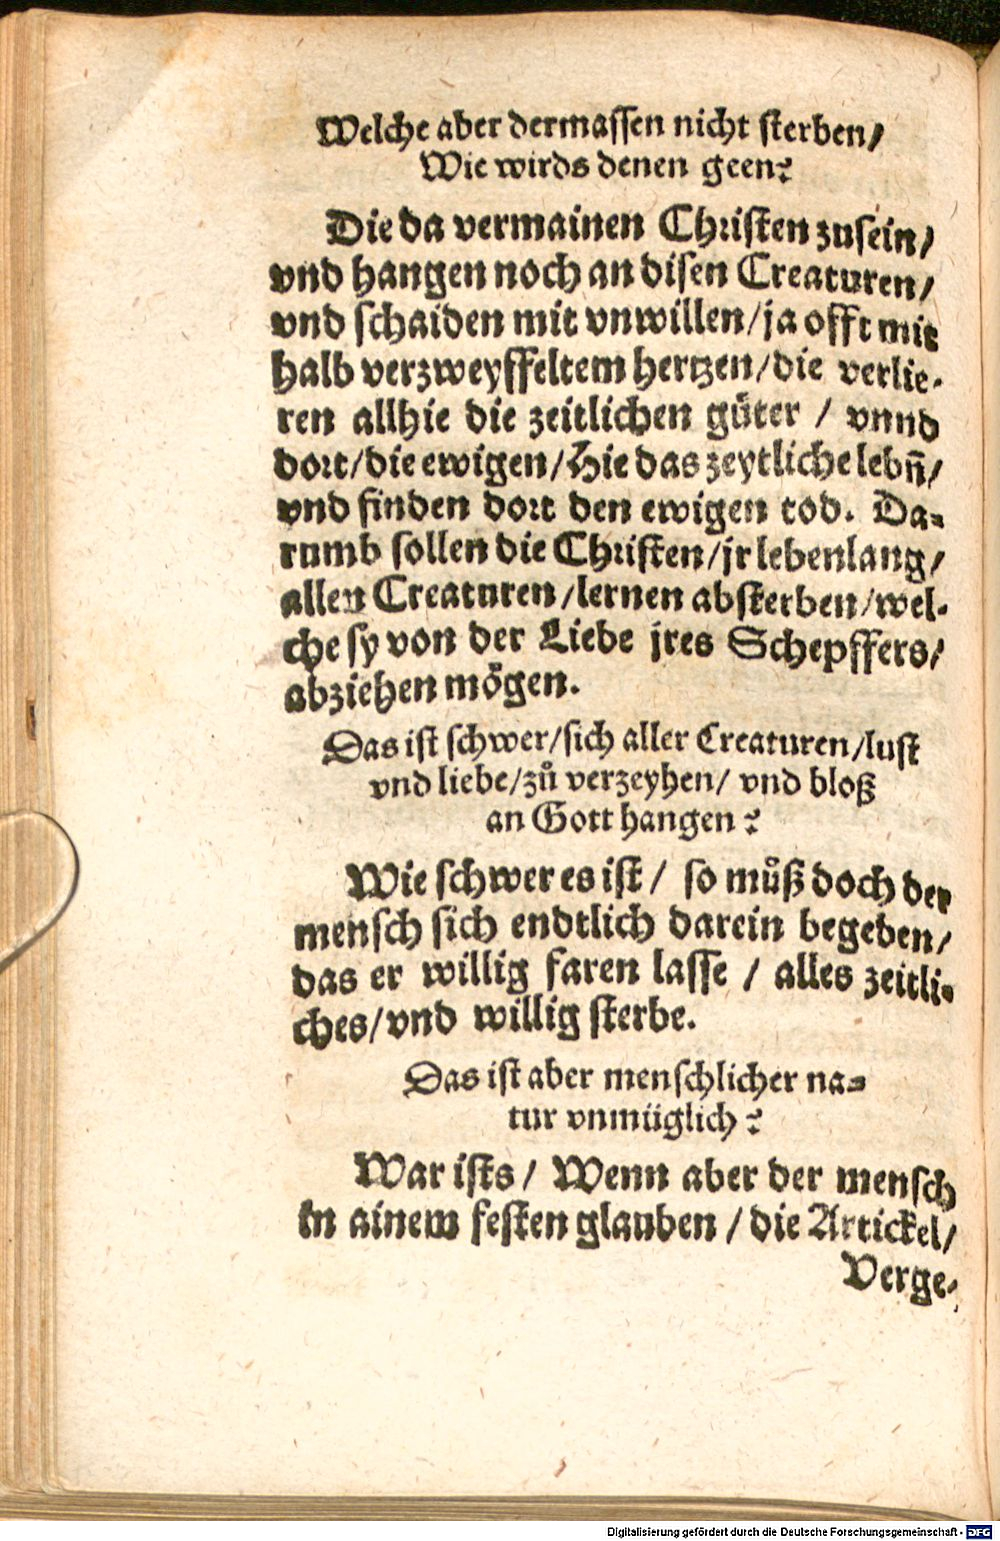 Welche aber dermassen nicht sterben/
Wie wirds denen geen?
Die da vermainen Christen zusein/
vnd hangen noch an disen Creaturen/
vnd schaiden mit vnwillen/ja offt mit
halb verzweyffeltem hertzen/die verlie-
ren allhie die zeitlichen güter / vnnd
dort/die ewigen/Hie das zeytliche lebñ/
vnd finden dort den ewigen tod. Da-
rumb sollen die Christen/jr lebenlang/
allen Creaturen/lernen absterben/wel-
che sy von der Liebe jres Schepffers/
abziehen mögen.
Das ist schwer/sich aller Creaturen/lust
vnd liebe/zů verzeyhen/ vnd bloß
an Gott hangen?
Wie schwer es ist/ so můß doch der
mensch sich endtlich darein begeben/
das er willig faren lasse / alles zeitli-
ches/vnd willig sterbe.
Das ist aber menschlicher na-
tur vnmüglich?
War ists/ Wenn aber der mensch
in ainem festen glauben/die Artickel/
Verge-
Digitalisierung gefördert durch die Deutsche Forschungsgemeinschaft - DFG